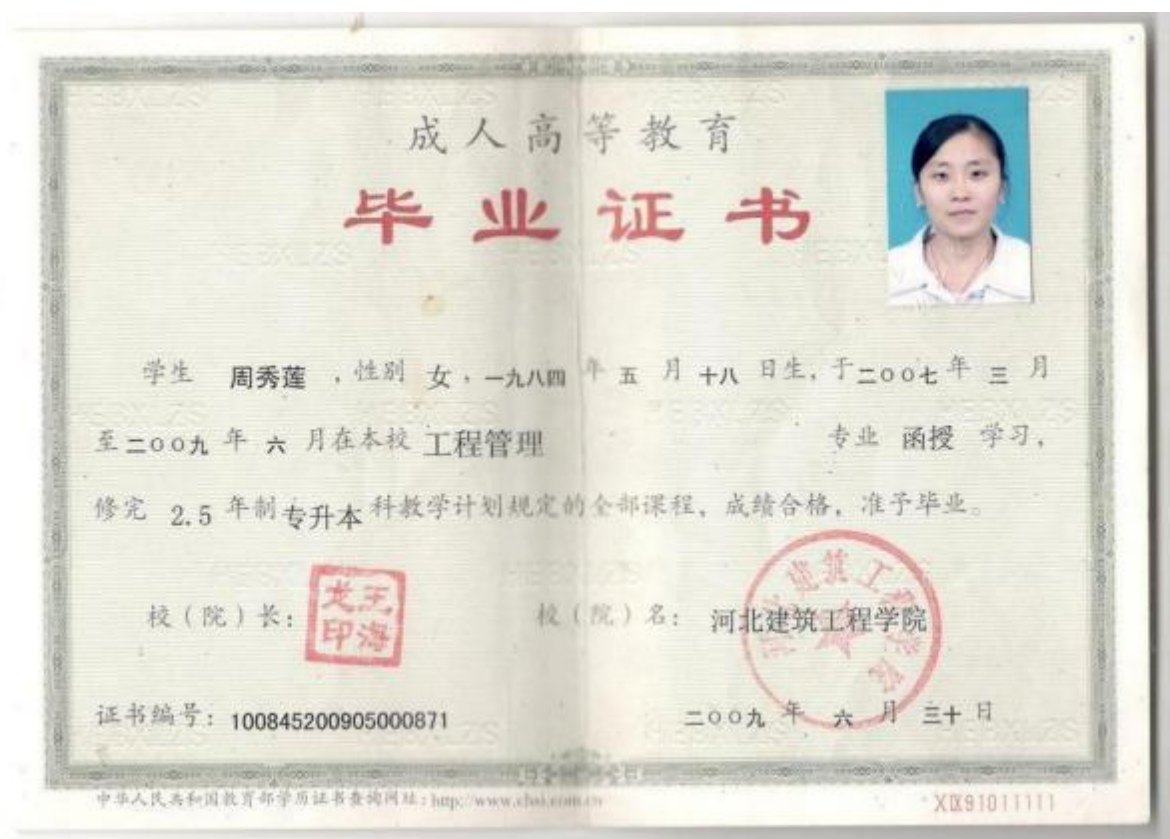 成人高等教育
毕业证书
学生 周秀莲 ，性别 女，一九八四 年 五 月 十八 日生，于二〇〇七年 三 月
至二〇〇九 年 六 月在本校 工程管理 专业 函授 学习，
修完 2.5 年制 专升本 科教学计划规定的全部课程，成绩合格，准予毕业。
校（院）长：
王海龙印
校（院）名：河北建筑工程学院
河北建筑工程学院
证书编号：100845200905000871
二〇〇九 年 六 月 三十 日
中华人民共和国教育部学历证书查询网址：http://www.chsi.com.cn
XIX91011111